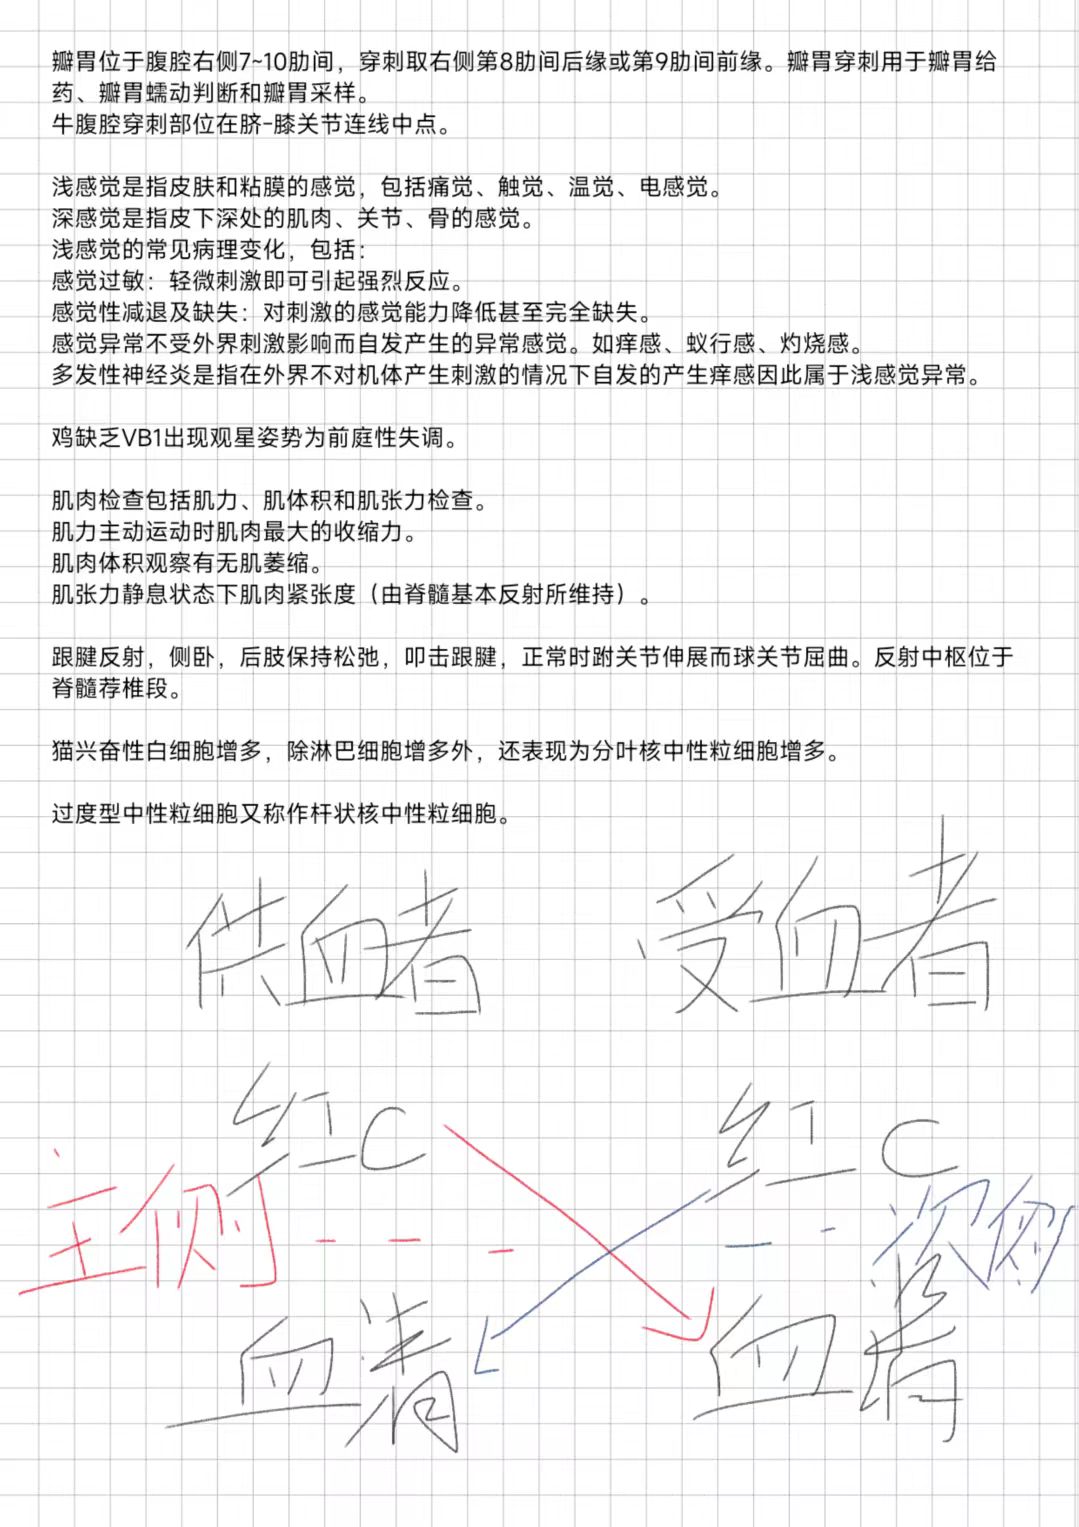 瓣胃位于腹腔右侧7~10肋间，穿刺取右侧第8肋间后缘或第9肋间前缘。瓣胃穿刺用于瓣胃给
药、瓣胃蠕动判断和瓣胃采样。
牛腹腔穿刺部位在脐-膝关节连线中点。
浅感觉是指皮肤和粘膜的感觉，包括痛觉、触觉、温觉、电感觉。
深感觉是指皮下深处的肌肉、关节、骨的感觉。
浅感觉的常见病理变化，包括：
感觉过敏：轻微刺激即可引起强烈反应。
感觉性减退及缺失：对刺激的感觉能力降低甚至完全缺失。
感觉异常不受外界刺激影响而自发产生的异常感觉。如痒感、蚁行感、灼烧感。
多发性神经炎是指在外界不对机体产生刺激的情况下自发的产生痒感因此属于浅感觉异常。
鸡缺乏VB1出现观星姿势为前庭性失调。
肌肉检查包括肌力、肌体积和肌张力检查。
肌力主动运动时肌肉最大的收缩力。
肌肉体积观察有无肌萎缩。
肌张力静息状态下肌肉紧张度（由脊髓基本反射所维持）。
跟腱反射，侧卧，后肢保持松弛，叩击跟腱，正常时跗关节伸展而球关节屈曲。反射中枢位于
脊髓荐椎段。
猫兴奋性白细胞增多，除淋巴细胞增多外，还表现为分叶核中性粒细胞增多。
过度型中性粒细胞又称作杆状核中性粒细胞。
供血者 受血者
红C 红C
主侧 次侧
血清 血清